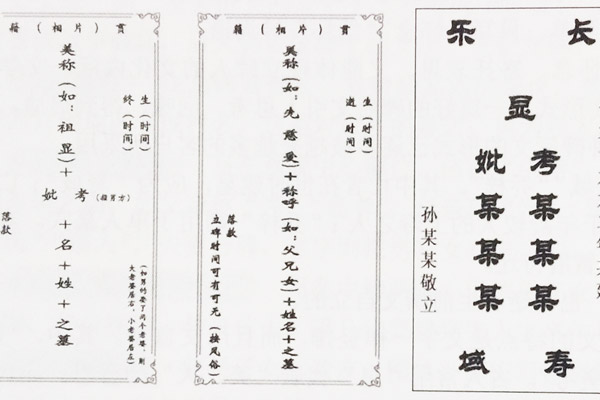 籍（相片）贯
生（时间）
终（时间）
美称（如：祖显）＋
妣 考
＋名＋姓＋之墓
（如男的娶了两个老婆，则
大老婆居右，小老婆居左）
落款
籍（相片）贯
生（时间）
逝（时间）
美称（如：先慈爱）＋称呼（如：父兄女）＋姓名＋之墓
落款
立碑时间可有可无（按风俗）
乐 长
显
考某某某
妣某某某
域 寿
孙某某敬立